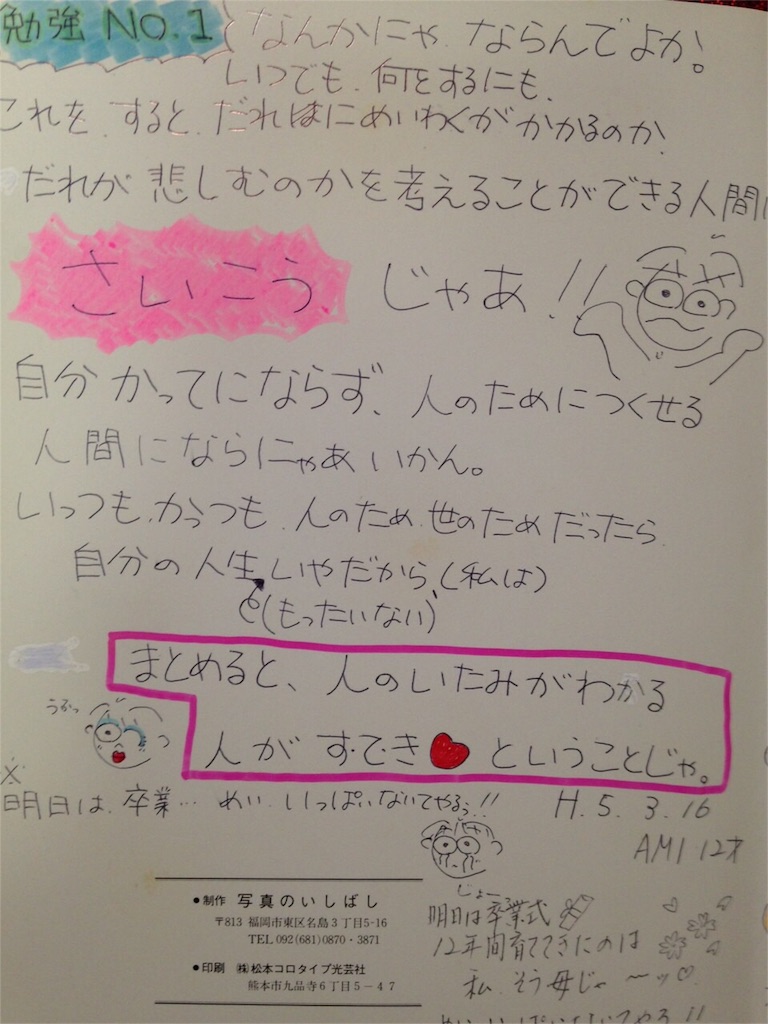 勉強 NO.1 なんかにゃ ならんでよか!
いつでも、何をするにも、
これを、すると、だれはにめいわくがかかるのか、
だれが悲しむのかを考えることができる人間に
さいこう じゃあ!!
自分かってにならず、人のためにつくせる
人間にならにゃあいかん。
いっつも、かっつも、人のため、世のためだったら
自分の人生、いやだから、(私は)
(もったいない)
まとめると、人のいたみがわかる
人がすてき♥ということじゃ。
うふっ
※
明日は、卒業… めい、いっぱいないてやるぅ!!
H.5.3.16
AMI 12才
じょー
●制作 写真のいしばし
〒813 福岡市東区名島3丁目5-16
TEL 092(681)0870・3871
●印刷 ㈱松本コロタイプ光芸社
熊本市九品寺6丁目5-47
明日は卒業式
12年間育ててきたのは
私、そう母じゃ〜ッ♡
めいいっぱいないてやる!!